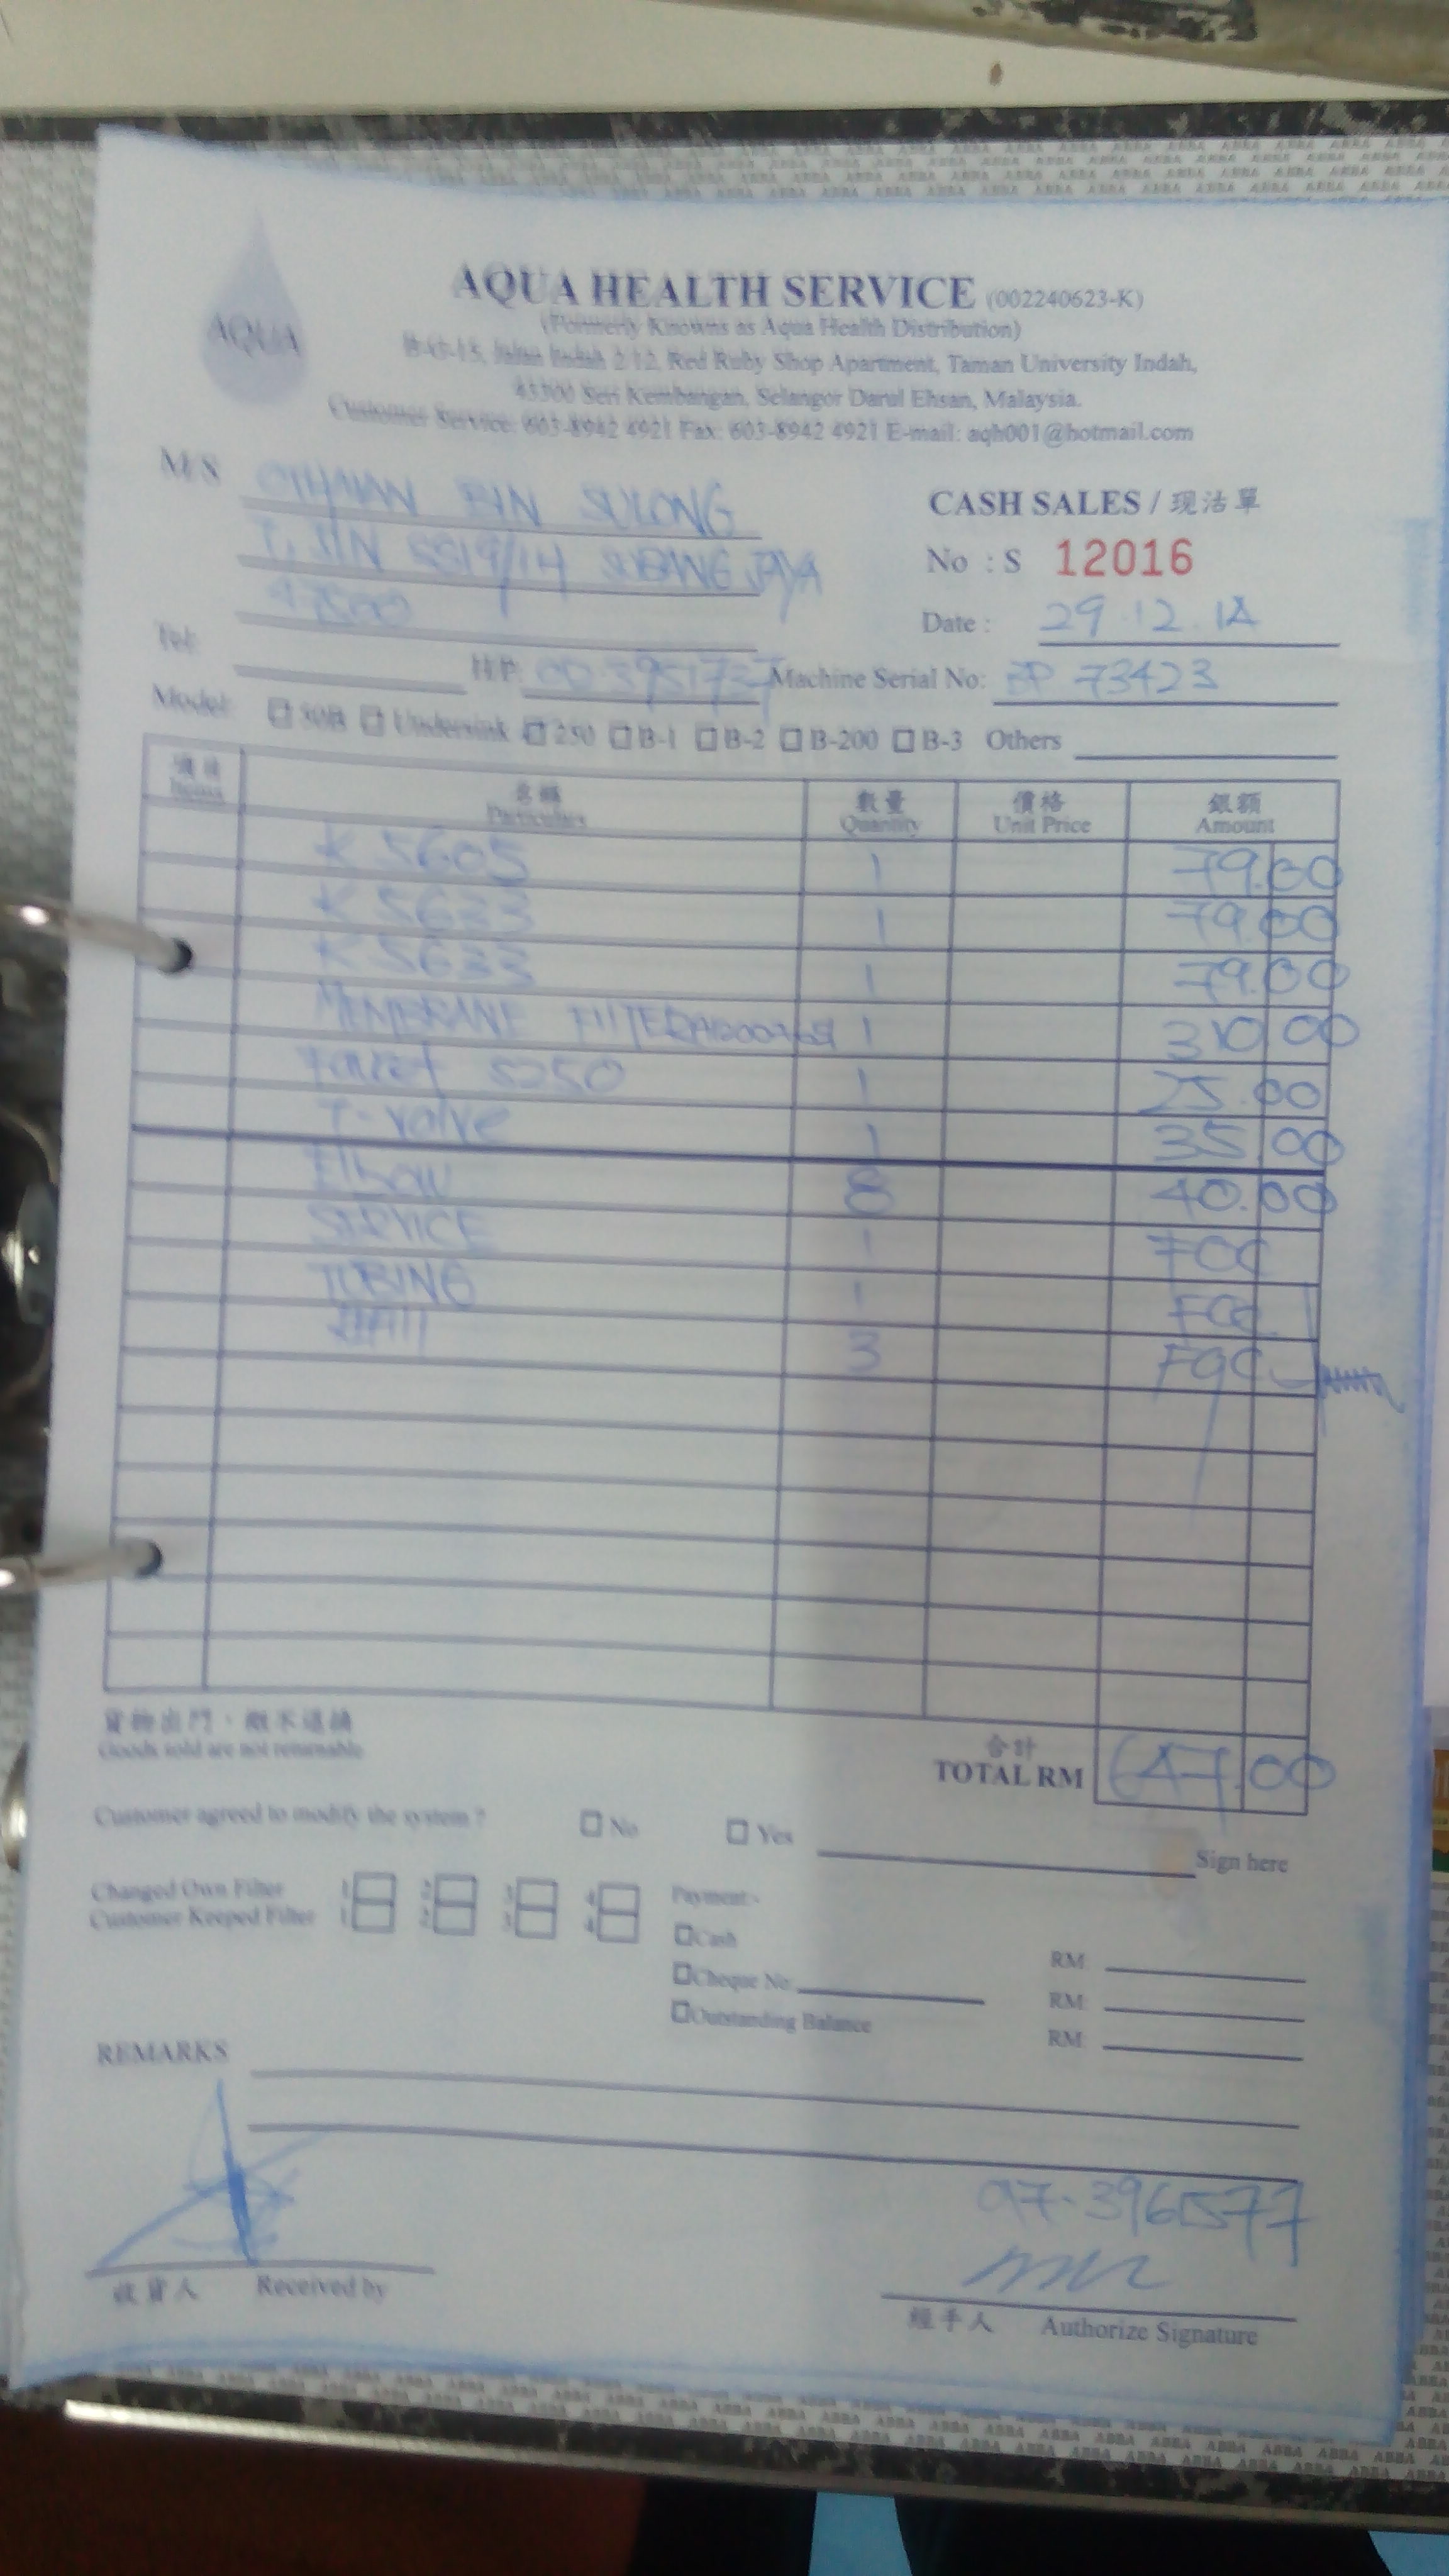 AQUA
AQUA HEALTH SERVICE (002240623-K)
(Formerly Knowns as Aqua Health Distribution)
Jalan Indah 2/12, Red Ruby Shop Apartment, Taman University Indah,
43300 Seri Kembangan, Selangor Darul Ehsan, Malaysia.
Customer Service: 603-8942 4921 Fax: 603-8942 4921 E-mail: aqh001@hotmail.com
M/S OTHMAN BIN SULONG
SS19/14 SUBANG JAYA
47500
CASH SALES / 現沽單
No : S 12016
Date : 29.12.14
Tel:
H/P: Machine Serial No: 73423
Model: Undersink 250 B-1 B-2 B-200 B-3 Others
名稱 數量 價格 銀額
Items Particulars Quantity Unit Price Amount
K 5605 1 79.00
K 5633 1 79.00
K 5633 1 79.00
MEMBRANE FILTER 1 310.00
Faucet 1 25.00
T-valve 1 35.00
Elbow 8 40.00
SERVICE 1 FOC
TUBING 1 FOC
3 FOC
貨物出門，概不退換
Goods sold are not returnable
合計
TOTAL RM 647.00
Customer agreed to modify the system ? No Yes Sign here
Changed Own Filter 1 2 3 4
Customer Keeped Filter 1 2 3 4
Payment:-
Cash RM
Cheque No. RM
Outstanding Balance RM
REMARKS
收貨人 Received by
經手人 Authorize Signature